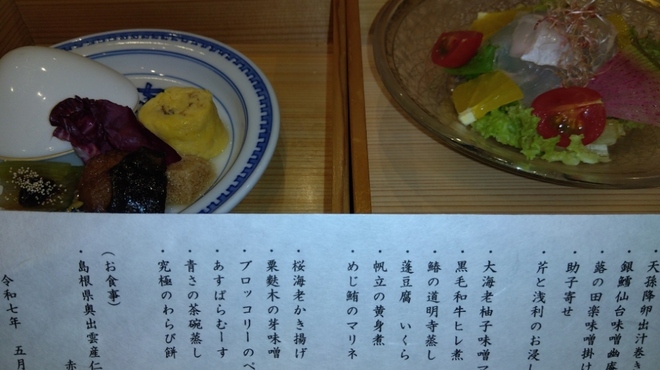 ・天孫降卵出汁巻き
・銀鱈仙台味噌幽庵
・蕗の田楽味噌掛け
・助子寄せ
・芹と浅利のお浸し
・大海老柚子味噌マ
・黒毛和牛ヒレ煮
・鰆の道明寺蒸し
・蓬豆腐 いくら
・帆立の黄身煮
・めじ鮪のマリネ
・桜海老かき揚げ
・粟麩木の芽味噌
・ブロッコリーのペ
・あすぱらむーす
・青さの茶碗蒸し
・究極のわらび餅
(お食事)
・島根県奥出雲産仁
赤
令和七年 五月